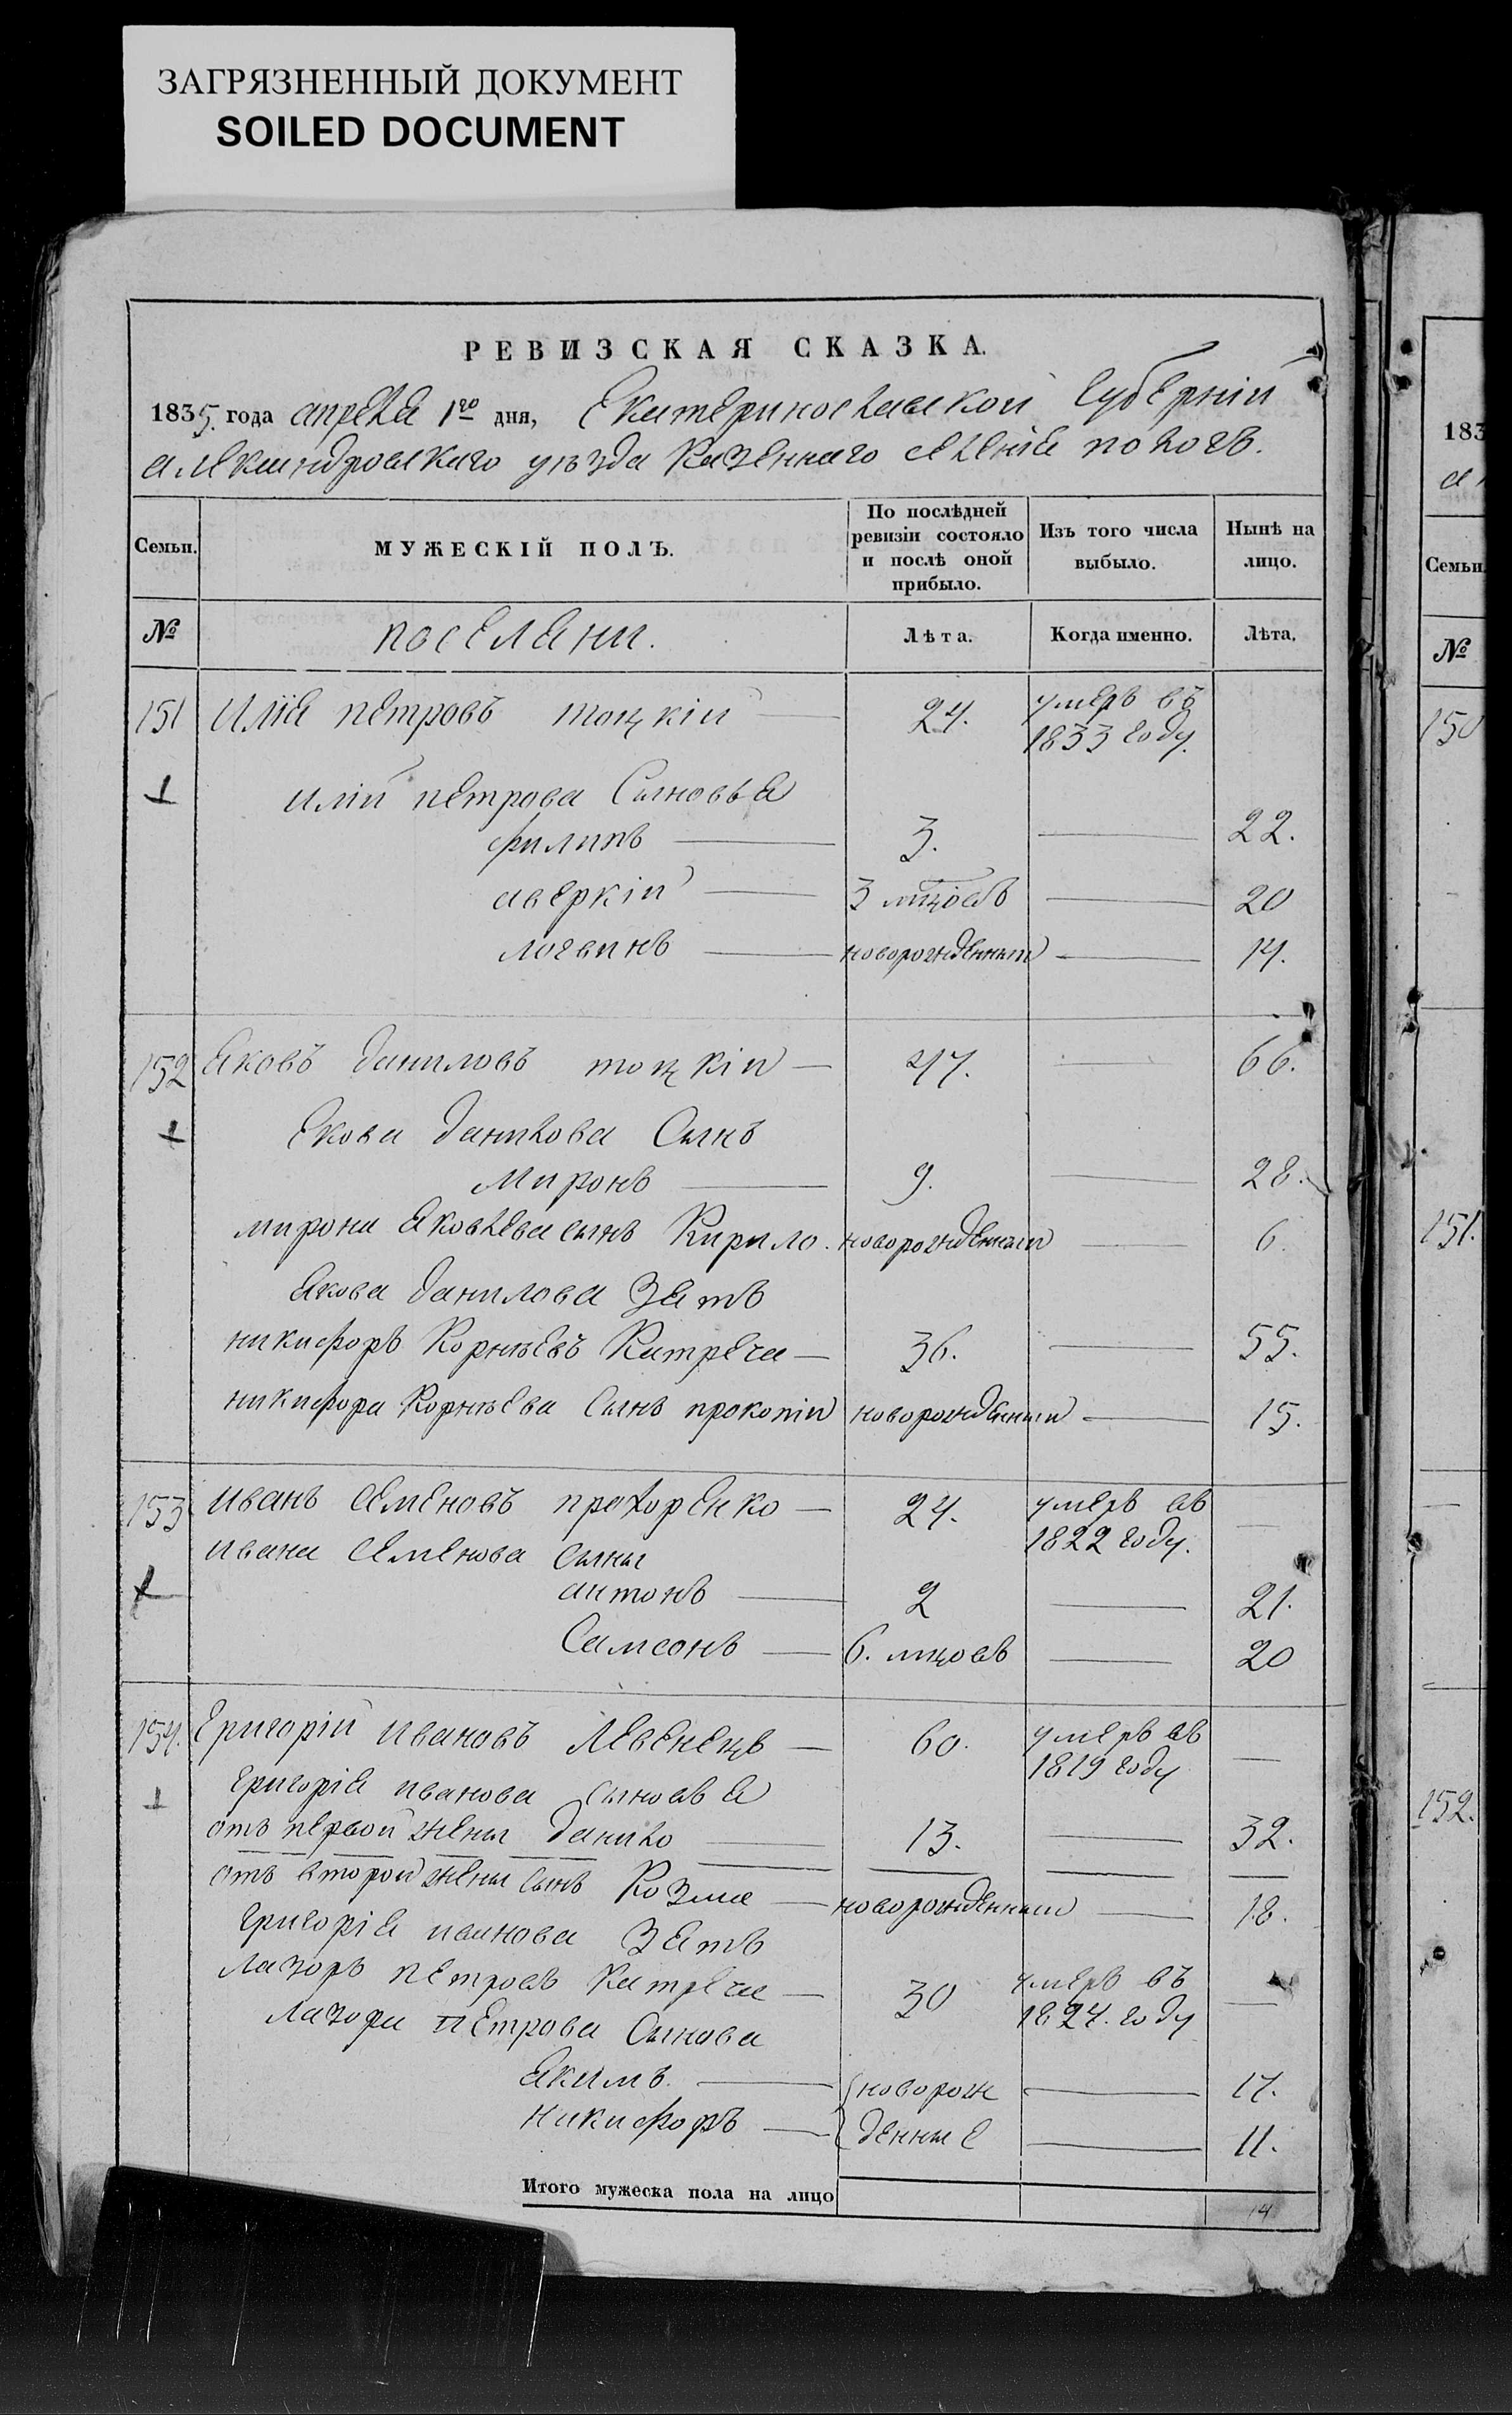 ЗАГРЯЗНЕННЫЙ ДОКУМЕНТ
SOILED DOCUMENT
РЕВИЗСКАЯ СКАЗКА.
1835. года апреля 1го дня, Екатеринославской губернии
александровскаго уезда Казеннаго селения пологъ.
Семьи. МУЖЕСКІЙ ПОЛЪ. По послѣдней ревизіи состояло и послѣ оной прибыло. Изъ того числа выбыло. Нынѣ на лицо.
№ поселяни. Лѣта. Когда именно. Лѣта.
151 Илія петровъ тоцкій 24. умеръ въ 1833 году.
иліи петрова Сыновья
филипъ 3. 22.
аверкій 3 мцовъ 20
логвинъ новорожденный 14.
152 Яковъ даниловъ тоцкій 47. 66.
Якова данилова Сынъ
Миронъ 9. 28.
мирона яковлева сынъ Кирило. новорожденный 6.
Якова данилова Зять
никифоръ Корнѣевъ Катреча 36. 55.
никифора Корнѣева Сынъ прокопій новорожденный 15.
153 иванъ Семеновъ прохоренко 24. умеръ въ 1822 году.
ивана Семенова Сыны
антонъ 2 21.
Самсонъ 6. мцовъ 20
154. Григорій ивановъ Левенецъ 60. умеръ въ 1819 году
григорія иванова Сыновья
отъ первой жены данило 13. 32.
отъ второй жены сынъ Козма новорожденный 18.
григорія иванова Зять
Лазоръ петровъ Катреча 30 умеръ въ 1824. году
Лазора петрова Сынова
Якимъ. новорож 17.
Никифоръ денные 11.
Итого мужеска пола на лицо 14
183
Семьи
№
150
151.
152.